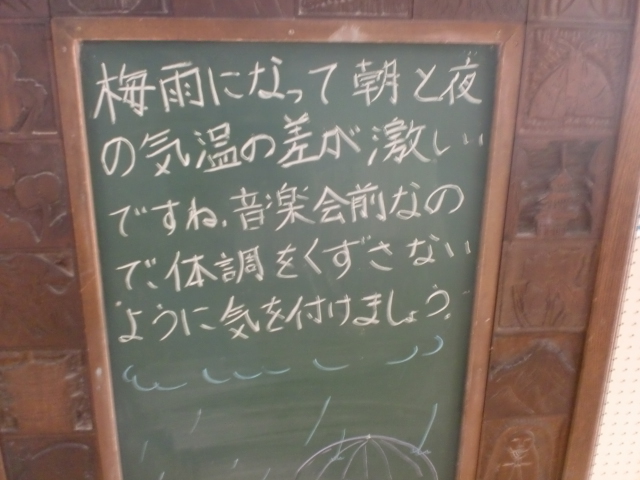 梅雨になって朝と夜
の気温の差が激しい
ですね。音楽会前なの
で、体調をくずさない
ように気を付けましょう。